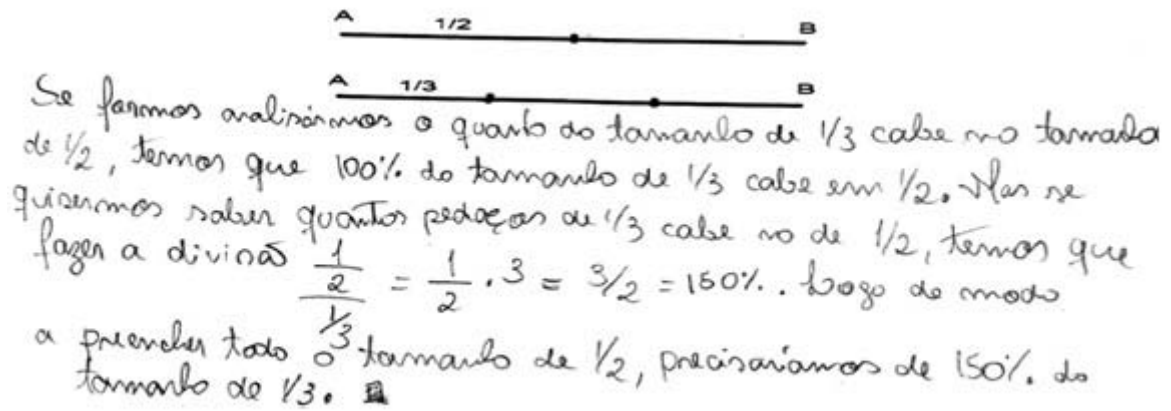 A 1/2 B
A 1/3 B
Se formos analisármos o quanto do tamanho de 1/3 cabe no tamanho
de 1/2, temos que 100% do tamanho de 1/3 cabe em 1/2. Mas se
quisermos saber quantos pedaços de 1/3 cabe no de 1/2, temos que
fazer a divisão (1/2)/(1/3) = 1/2 . 3 = 3/2 = 150%. Logo de modo
a preencher todo o tamanho de 1/2, precisaríamos de 150% do
tamanho de 1/3.